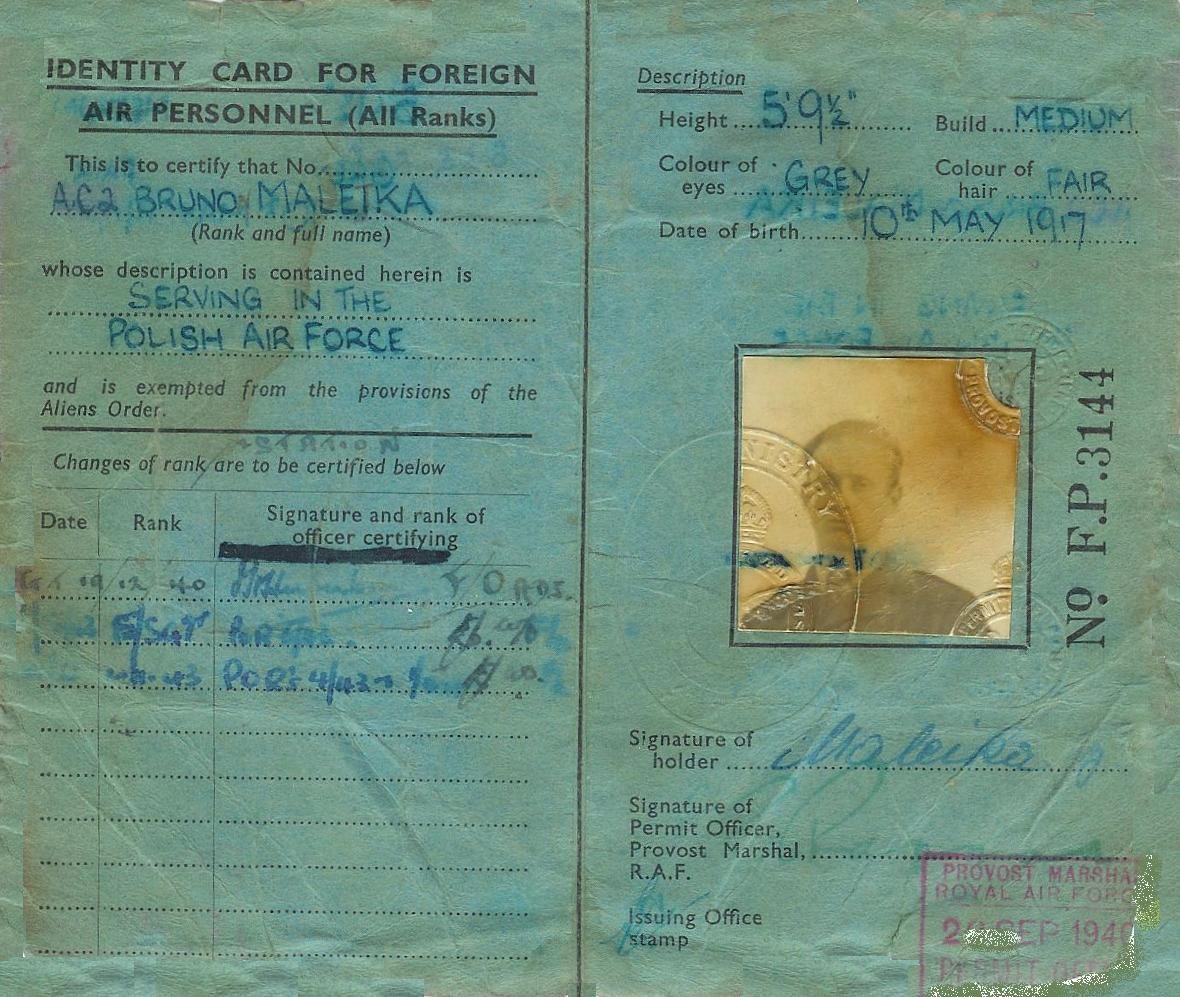 IDENTITY CARD FOR FOREIGN
AIR PERSONNEL (All Ranks)
This is to certify that No.
A.C.2 BRUNO MALEIKA
(Rank and full name)
whose description is contained herein is
SERVING IN THE
POLISH AIR FORCE
and is exempted from the provisions of the
Aliens Order.
Changes of rank are to be certified below
Date Rank Signature and rank of
officer certifying
19.12.40 F/O
F/SGT
POR 4/43
Description
Height 5' 9½" Build MEDIUM
Colour of eyes GREY Colour of hair FAIR
Date of birth 10th MAY 1917
MINISTRY
PROVOST
PERMIT
No F.P.3144
Signature of
holder Maleika B
Signature of
Permit Officer,
Provost Marshal,
R.A.F.
Issuing Office
stamp
PROVOST MARSHA
ROYAL AIR FORC
SEP 194
PERMIT